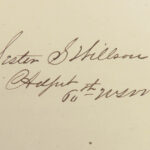 Lester S Willson
Adjut
60th NYSVV